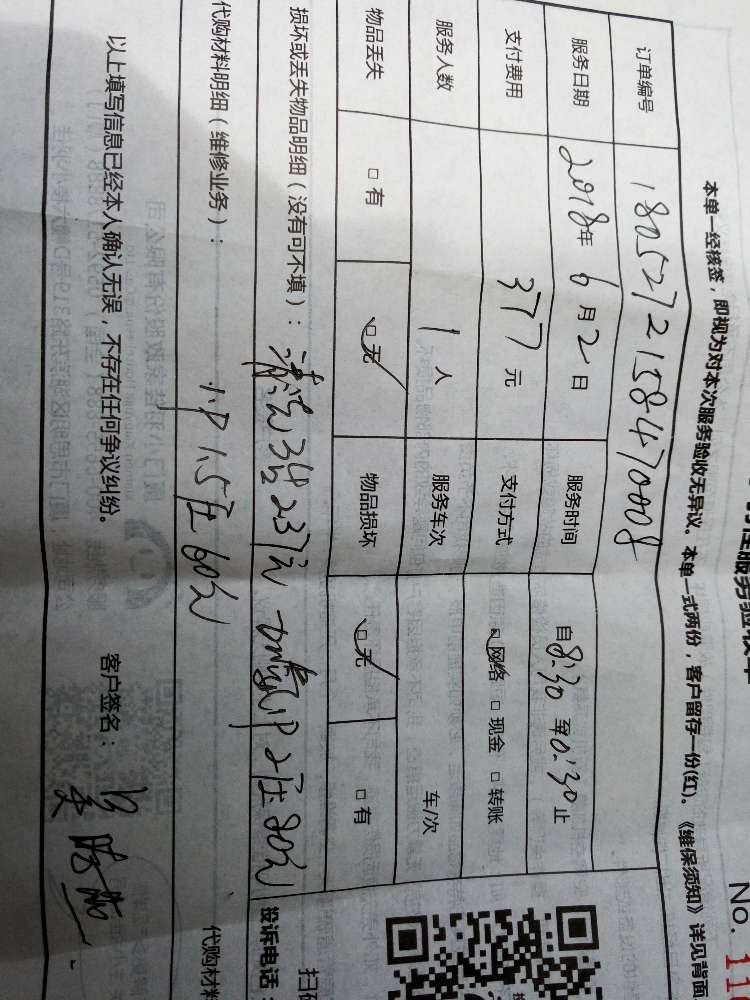 本单一经核签，即视为对本次服务验收无异议。本单一式两份，客户留存一份(红)。《维保须知》详见背面
No. 11
订单编号 1805272158470008
服务日期 2018年 6月2日 服务时间 自8:30 至10:30止
支付费用 377元 支付方式 □网络 □现金 □转账
服务人数 1人 服务车次 车/次
物品丢失 □有 □无 物品损坏 □无 □有
损坏或丢失物品明细（没有可不填）：清洗3台237元 加氟1P 2压80元
投诉电话：
代购材料明细（维修业务）：
1P 1.5压60元
代购材料
以上填写信息已经本人确认无误，不存在任何争议纠纷。 客户签名：